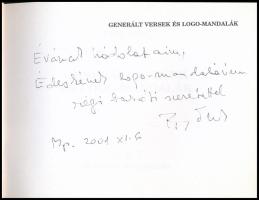 GENERÁLT VERSEK ÉS LOGO-MANDALÁK
Évának
Édesének logo-mandalával
régi baráti szeretettel
Bp. 2001 XI. 6